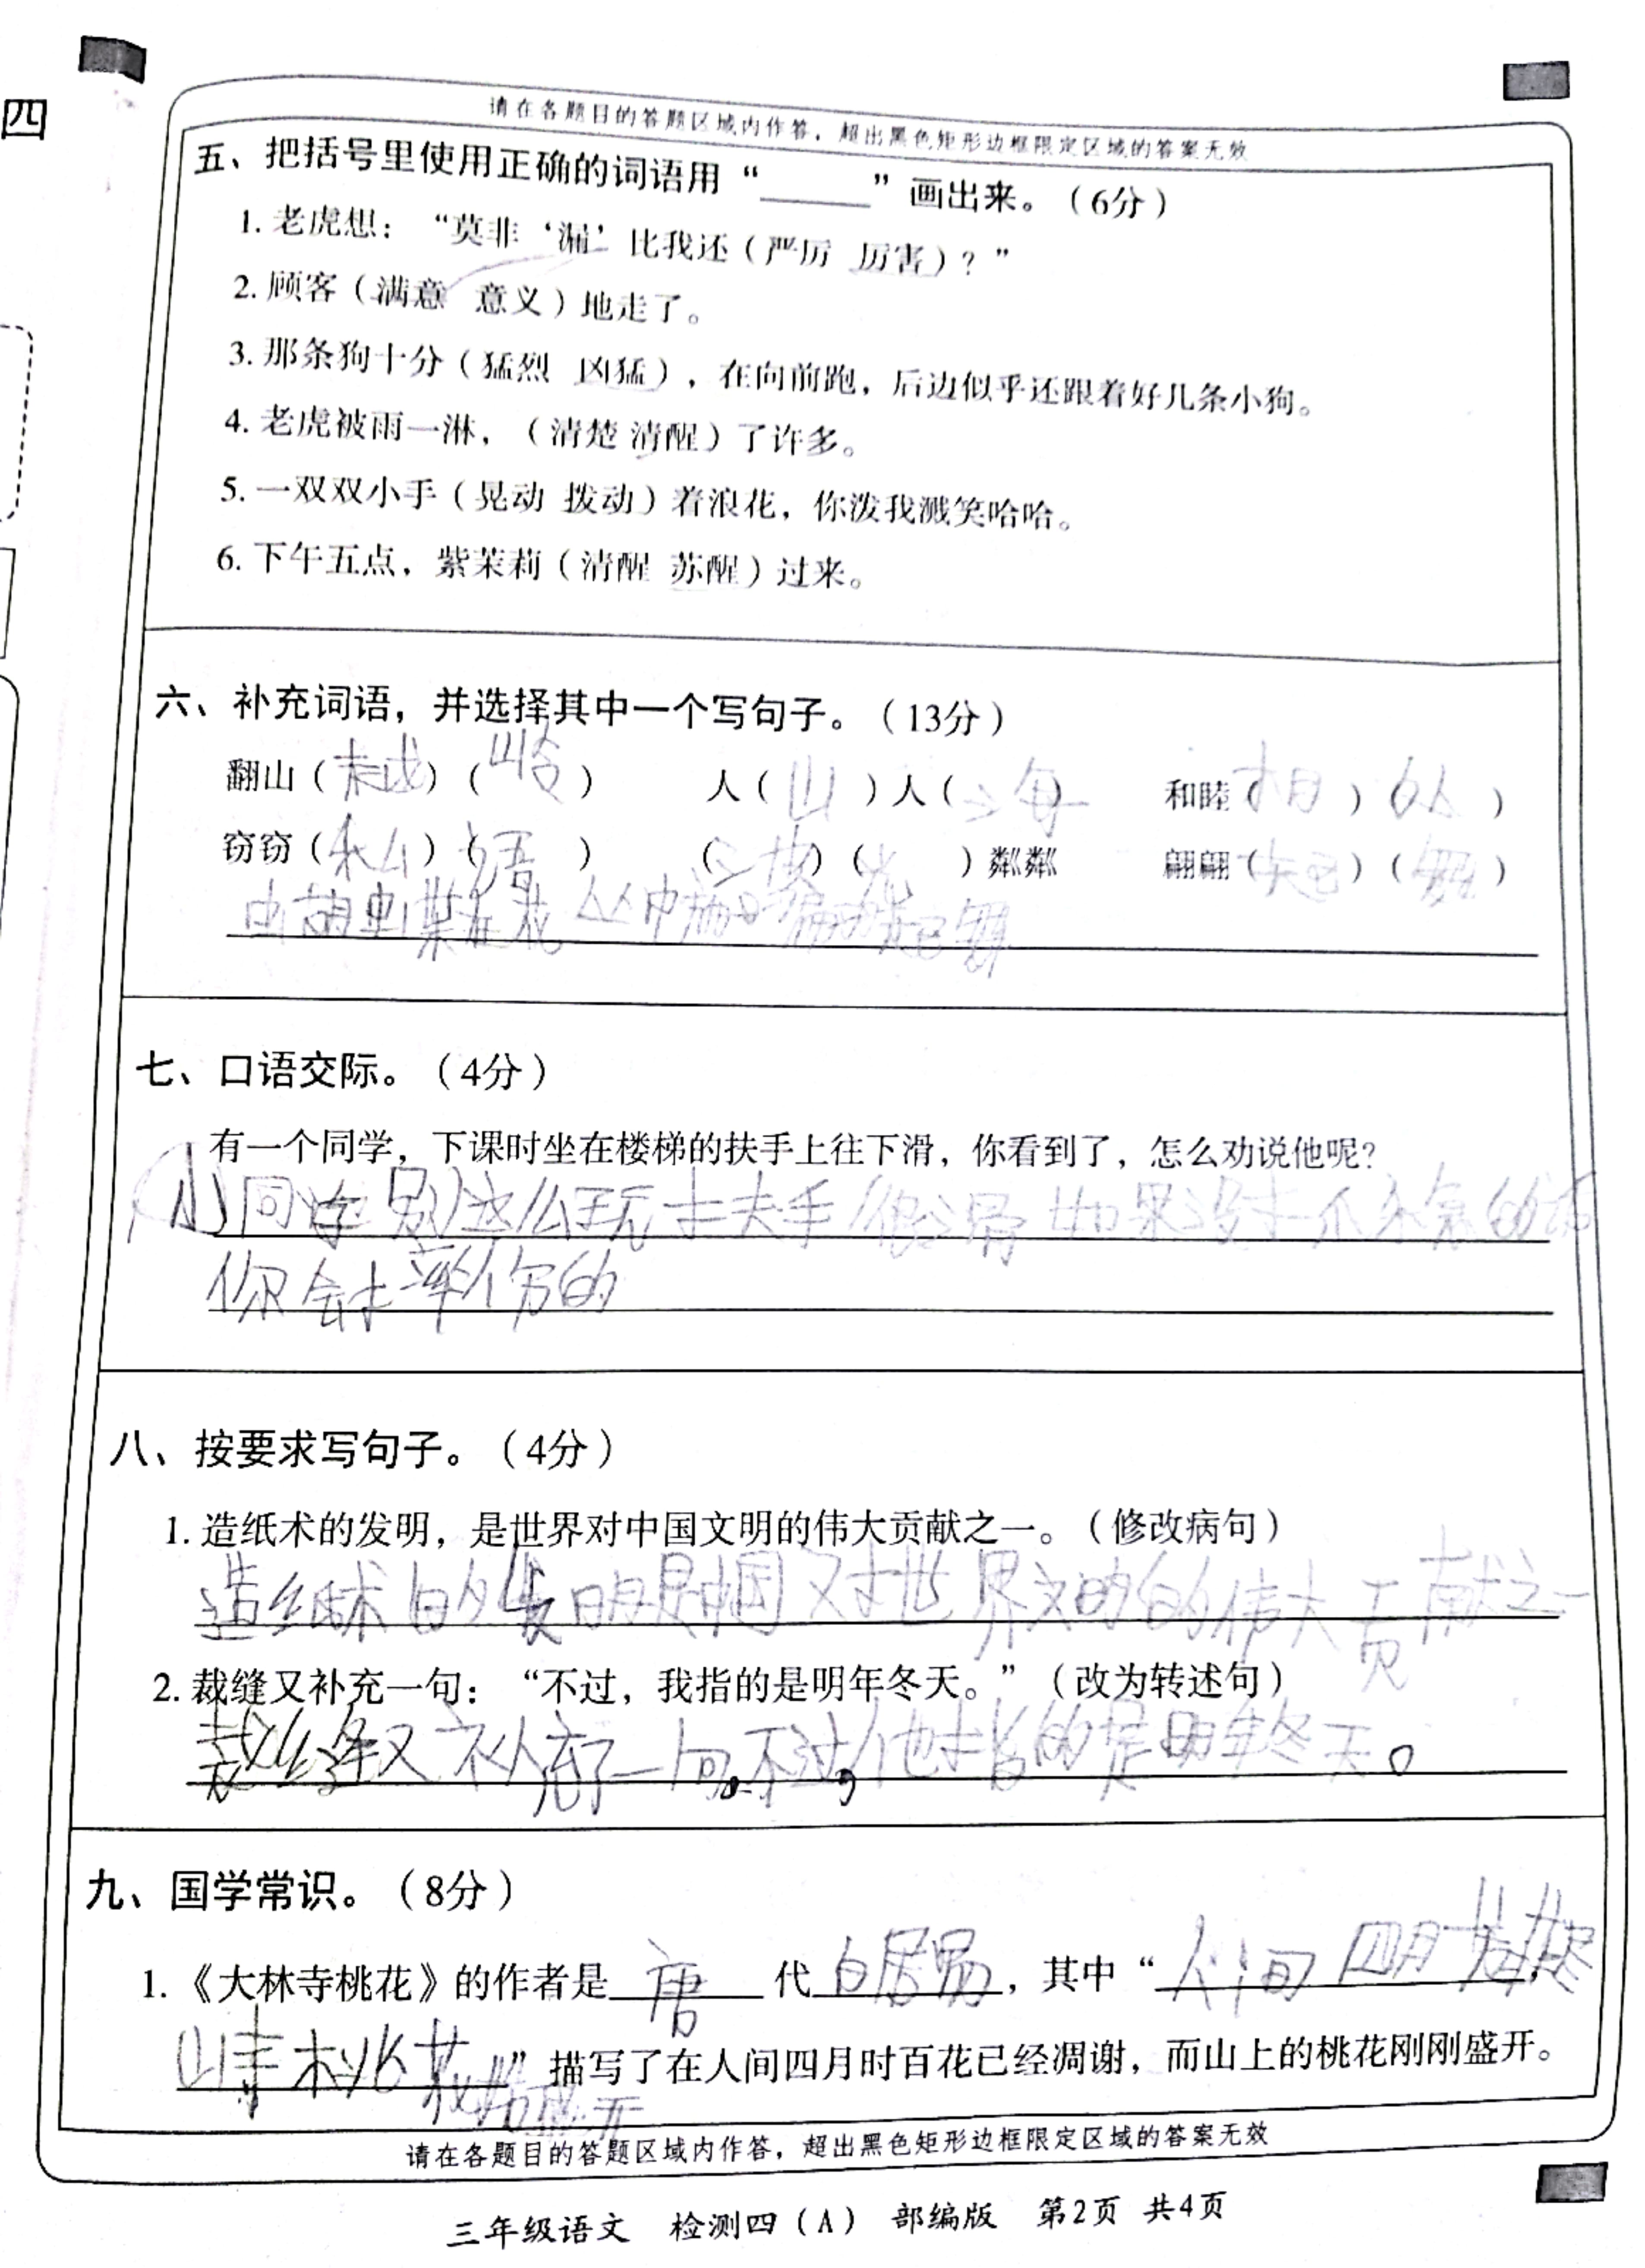 四
请在各题目的答题区域内作答，超出黑色矩形边框限定区域的答案无效
五、把括号里使用正确的词语用“_____”画出来。（6分）
1. 老虎想：“莫非‘漏’比我还（严厉 厉害）？”
2. 顾客（满意 意义）地走了。
3. 那条狗十分（猛烈 凶猛），在向前跑，后边似乎还跟着好几条小狗。
4. 老虎被雨一淋，（清楚 清醒）了许多。
5. 一双双小手（晃动 拨动）着浪花，你泼我溅笑哈哈。
6. 下午五点，紫茉莉（清醒 苏醒）过来。
六、补充词语，并选择其中一个写句子。（13分）
翻山（越）（岭） 人（山）人（海） 和睦（相）（处）
窃窃（私）（语） （波）（光）粼粼 翩翩（起）（舞）
七、口语交际。（4分）
有一个同学，下课时坐在楼梯的扶手上往下滑，你看到了，怎么劝说他呢？
小同学别这么玩扶手很滑如果没抓紧的话
你会摔伤的
八、按要求写句子。（4分）
1. 造纸术的发明，是世界对中国文明的伟大贡献之一。（修改病句）
造纸术的发明是中国对世界文明的伟大贡献之一
2. 裁缝又补充一句：“不过，我指的是明年冬天。”（改为转述句）
裁缝又补充了一句。不过，他指的是明年冬天。
九、国学常识。（8分）
1.《大林寺桃花》的作者是唐代白居易，其中“人间四月芳菲尽，
山寺桃花始盛开”描写了在人间四月时百花已经凋谢，而山上的桃花刚刚盛开。
请在各题目的答题区域内作答，超出黑色矩形边框限定区域的答案无效
三年级语文 检测四（A） 部编版 第2页 共4页